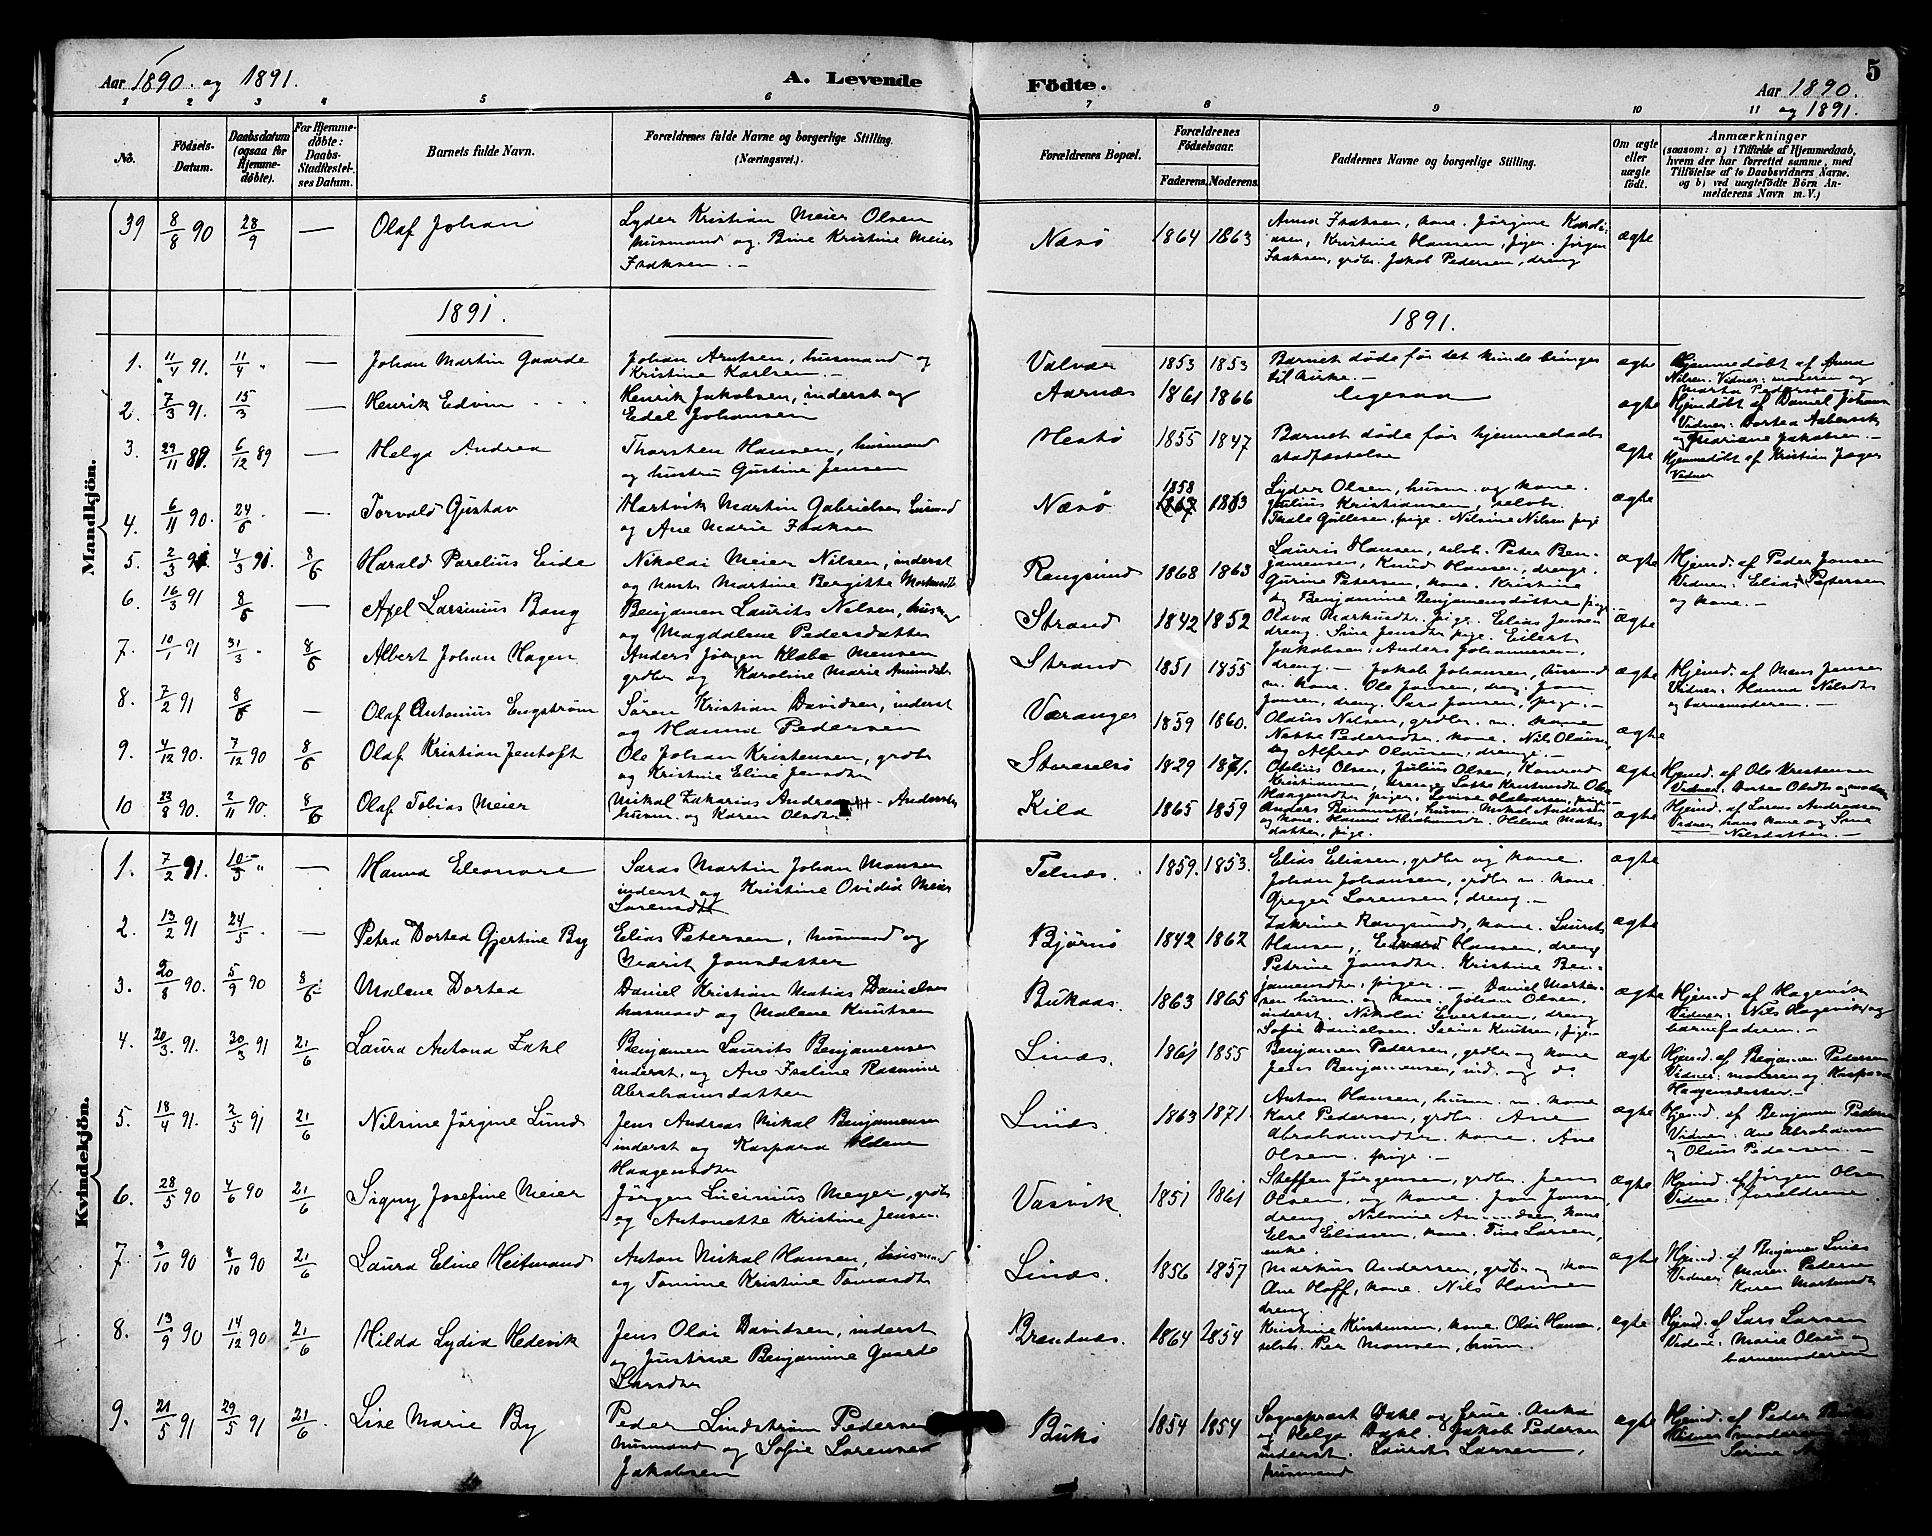 Aar 1890. og 1891.
A. Levende
Födte.
Aar 1890.
og 1891.
5
1 2 3 4 5 6 7 8 9 10 11
No.
Födsels-
Datum.
Daabsdatum
(ogsaa for
Hjemme-
döbte).
For Hjemme-
döbte:
Daabs-
Stadfæstel-
ses Datum.
Barnets fulde Navn.
Forældrenes fulde Navne og borgerlige Stilling.
(Næringsvei.)
Forældrenes Bopæl.
Forældrenes
Födselsaar.
Faderens. Moderens.
Faddernes Navne og borgerlige Stilling.
Om ægte
eller
uægte
födt.
Anmærkninger
(saasom: a) i Tilfælde af Hjemmedaab,
hvem der har forrettet samme, med
Tilföielse af to Daabsvidners Navne.
og b) ved uægtefödte Börn An-
melderens Navn m. V.)
39 8/8 90 28/9 — Olaf Johan
Lyder Kristian Meier Olsen
husmand og Bine Kristine Meier
Isaksen. —
Næsö 1864 1863
Isaksen, kone. Jörgine
Kristine Hansen, piger. Jörgen
Isaksen, grdbr. Jakob Pedersen, dreng
ægte
1891.
1891.
Mandkjön.
1. 11/4 91. 11/4 " — Johan Martin Gaarde
Johan Arntsen, husmand og
Kristine Karlsen. —
Valvær 1853 1853
Barnet döde för det kunde bringes
til kirke. —
ægte
Hjemmedöbt af Anna
Nilsen. Vidner: moderen og
Marta Pedersen
2. 7/3 91. 15/3 — Henrik Edvin
Henrik Jakobsen, inderst og
Edel Johansen
Aarnæs 1861 1866
ligesaa
ægte
Hjemdöbt af Daniel Johans
Vidner: Dortea
og Mariane Jakobsen. —
3. 29/11 89. 6/12 89 — Helga Andrea
Thorsten Hansen, husmand
og hustru Gustine Jensen
Hestö 1855 1847
Barnet döde för hjemmedaabs
stadfæstelse
ægte
Hjemmedöbt af Kristian Jæger
Vidner
4. 6/11 90. 24/6 — Torvald Gustav
Hartvik Martin Gabrielsen husmand
og Ane Marie Isaksen
Næsö 1858 1863
Lyder Olsen, husm. og kone.
Julius Kristiansen, selvb.
pige. Nilsine Nilsen pige
ægte
5. 2/3 91 4/3 91. 8/6 Harald Parelius Eide
Nikolai Meier Nilsen, inderst
og hustr. Martine Bergitte
Rangsund 1868 1863
Lauris Hansen, selvb. Peter Ben-
jamensen, Knud Hansen, drenge.
Gurine Petersen, kone. Kristine
og Benjamine Benjamensdöttre piger
ægte
Hjemd. af Peder Jensen
Vidner: Elias Petersen
og kone. —
6. 16/3 91 8/6 — Axel Larsinius Bang
Benjamen Laurits Nilsen, husm
og Magdalene Pedersdatter
Strand 1842 1852
Olava Markusdtr. pige. Elias Jensen
dreng. Sine Jensdtr. pige. Eilert
Jakobsen, Anders Johannesen,
dreng. —
ægte
7. 10/1 91 31/3 . 8/6 Albert Johan Hagen
Anders Jörgen Klæbo Mensen
grdbr og Karoline Marie Amundsdtr
Strand 1851 1855
Jakob Johansen, husmand
m. kone. Ole Jonsen, dreng. Jon
Jonsen, dreng. Sara Jonsen, pige. —
ægte
Hjemd. af Mens Jensen
Vidner: Hanna Nilsdtr
og barnemoderen. —
8. 7/2 91 8/6 — Olaf Antonius Engström
Sören Kristian Davidsen, inderst
og Hanna Pedersen
Væranger 1859 1860.
Olaus Nilsen, grdbr. m. kone
Pedersdtr. kone. Nils Olausen,
og Alfred Olausen, drenge. —
ægte
9. 4/12 90. 7/12 90 8/6 Olaf Kristian Jentoft
Ole Johan Kristensen, grdbr
og Kristine Eline Jensdtr
Storselsö 1829 1871.
Otelius Olsen, Julius Olsen, Konrad
Kristiansen, drenge
ægte
Hjemd. af Ole Kristensen
Vidner: Dortea Olsdtr og moderen
10 23/8 90. 2/11 90. 8/6 Olaf Tobias Meier
Mikal Zakarias Andreas - Andersen
husm. og Karen Olsdtr.
Kila 1865 1859
husm. Mikal Andersen
og kone.
pige.
ægte
Hjemd. af Sörens Andreasen
Vidner hans kone og Sine
Nilsdatter. —
Kvindekjön.
1. 7/2 91. 10/5 " — Hanna Eleonore
Saras Martin Johan Monsen
inderst og Kristine Ovidia Meier
Sorensdtr
Telnæs. 1859. 1853.
Elias Eliasen, grdbr og kone.
Johan Johansen, grdbr m. kone.
Greger Lorensen, dreng. —
ægte
2. 13/2 91 24/5 . — Petra Dortea Gjertine By
Elias Petersen, husmand og
Marit Jonsdatter
Björnö 1842 1862
Zakrine Rangsund, kone. Laurits
Hansen, Edvard Hansen, dreng
Petrine Jonsdtr. Kristine Ben-
jamensdtr, piger. —
ægte
3. 20/8 90. 5/9 90 8/6 Malene Dortea
Daniel Kristian Matias Danielsen
husmand og Malene Knutsen
Bukaas. 1863 1865
Daniel Morten-
sen husm. og kone. Johan Olsen,
inderst. Nikolai Evertsen, dreng
Sofie Danielsen. Serine Knutsen, piger
ægte
Hjemd af Hagevik
Vidner: Nils Hagevik og
barnefaderen. —
4. 20/3. 91. 30/3 91 21/6 Laura Antona Zahl
Benjamen Laurits Benjamensen
inderst. og Ane Iseline Rasmine
Abrahamsdatter
Linæs. 1861 1855
Benjamen Pedersen, grdbr og kone
Jens Benjamensen, ind. og do
ægte
Hjemd. af Benjamen Pedersen
Vidner: moderen og Kaspara
Haagensdatter. —
5. 18/4 91. 2/5 91 21/6 Nilsine Jörgine Lund
Jens Andreas Mikal Benjamensen
inderst og Kaspara Oldine
Haagensdtr
Linæs. 1863 1871.
Anton Hansen, husm. m. kone
Karl Pedersen, grdbr. Ane
Abrahamsdtr. kone. Ane
Olsen. pige. —
ægte
Hjemd. af Benjamen Pedersen
Vidner: Ane Abrahamsen
og Olius Pedersen. —
6. 28/5 90 4/6 90 21/6 Signy Josefine Meier
Jörgen Licinius Meyer, grdbr
og Antonette Kristine Jensen
Vasvik. 1851 1861
Steffen Jörgensen, grdbr. Jens
Olsen, og kone. Jon Jonsen
dreng. Nilsine kone
Else Eliasen, kone. Tine Larsen,
enke.
ægte
Hjemd. af Jörgen Olsen
Vidner: forældrene.
7 3/10 90 8/10 90 21/6 Laura Eline Heitmand
Anton Mikal Hansen, husmand
og Tomine Kristine Tomasdtr
Linæs. 1856 1857
Markus Andersen, grdbr og kone
Ane Hoff, kone. Nils Hansen
dreng
ægte
Hjemd. af Benjamen Linæs
Vidner Maren Pedersen
Karen
8. 13/9 90 14/12 90 21/6 Hilda Lydia Hedevik
Jens Olai Davidsen, inderst
og Justine Benjamine Gaarde
Larsdtr
Brændnæs. 1864 1854
Kristine Kristensen, kone. Olai Hansen,
selvb. Per Monsen, husm.
ægte
Hjemd. af Lars Larsen
Vidner: Marie Olsen og
barnemoderen
9. 21/5 91 29/5 91 21/6 Lise Marie By
Peder Lindström Pedersen
husmand og Sofie Lorensea
Jakobsen
Bukö 1854 1854
Sogneprest Dahl og frue. Anka
og Helga Dahl. Jakob Pedersen
inderst. Laurits Larsen,
husmand
ægte
Hjemd. af Peder
Vidner moderen
Serine